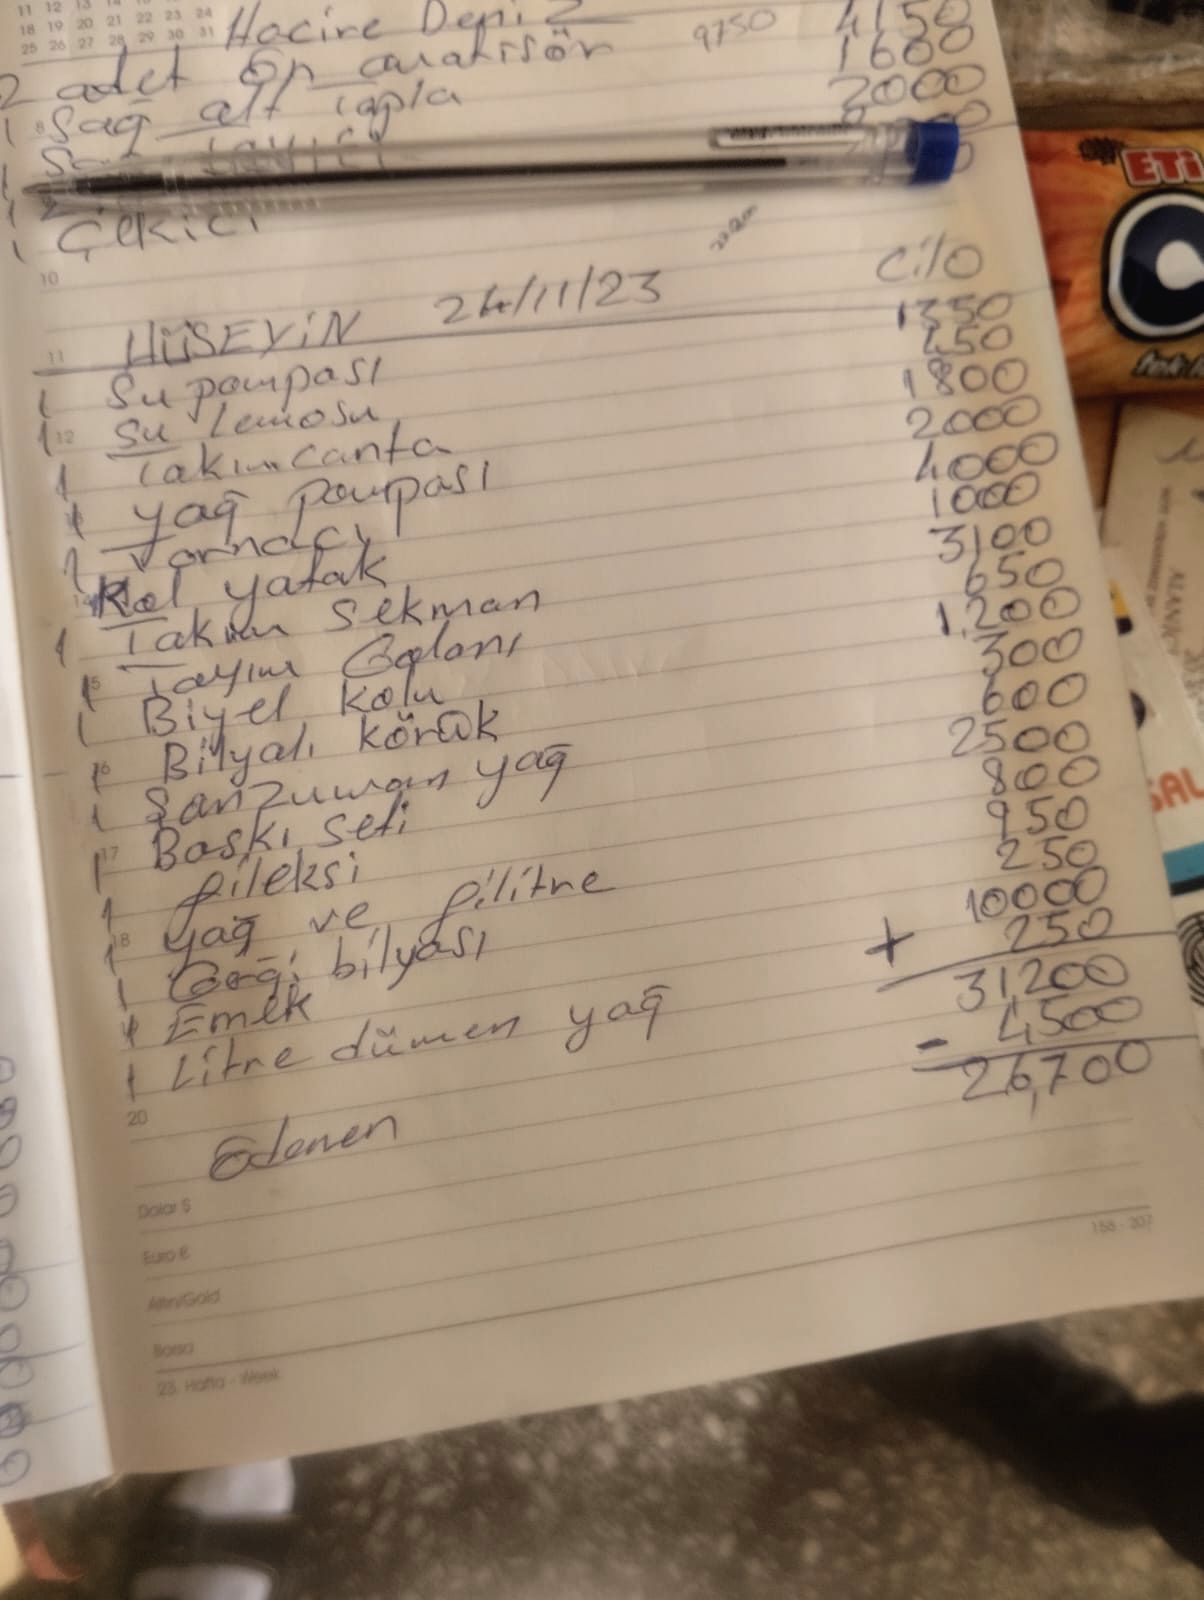 11 12 13 14 15 16 17
18 19 20 21 22 23 24
25 26 27 28 29 30 31
Hacire Deniz 9750 4150
2 adet ön amatisör 1600
1 Sağ alt tapla 2000
1
1 Çekici
8
10
HÜSEYİN 24/11/23 cilo
11
1 Su pompası 1350
1 Su 450
12
1 Takım canta 1800
1 yağ pompası 2000
1 Tornacı 4000
Kol yatak 1000
14
1 Takım Sekman 3100
1 Tayım 650
15
1 Biyel kolu 1.200
Bilyalı körük 300
16
1 Şanzuman yağ 600
1 Baskı seti 2500
17
1 fileksi 800
1 yağ ve filitre 950
18
1 bilyası 250
1 Emek 10000
1 Litre dümen yağ + 250
31200
Ödenen - 4500
26,700
20
Dolar $
Euro €
Altın/Gold
Borsa
23. Hafta - Week
158 - 207
ETi
SAL